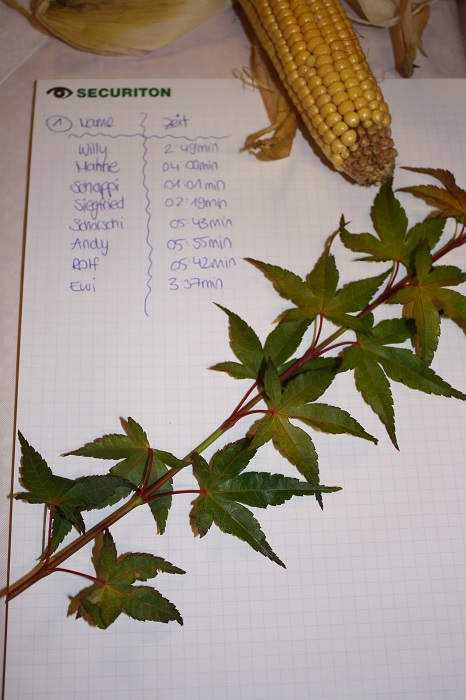 SECURITON
① Name Zeit
Willy 2:49min
Manne 04:00min
Schappi 01:01min
Siegfried 02:19min
Schorschi 05:43min
Andy 05:55min
Rolf 05:42min
Ewi 3:37min